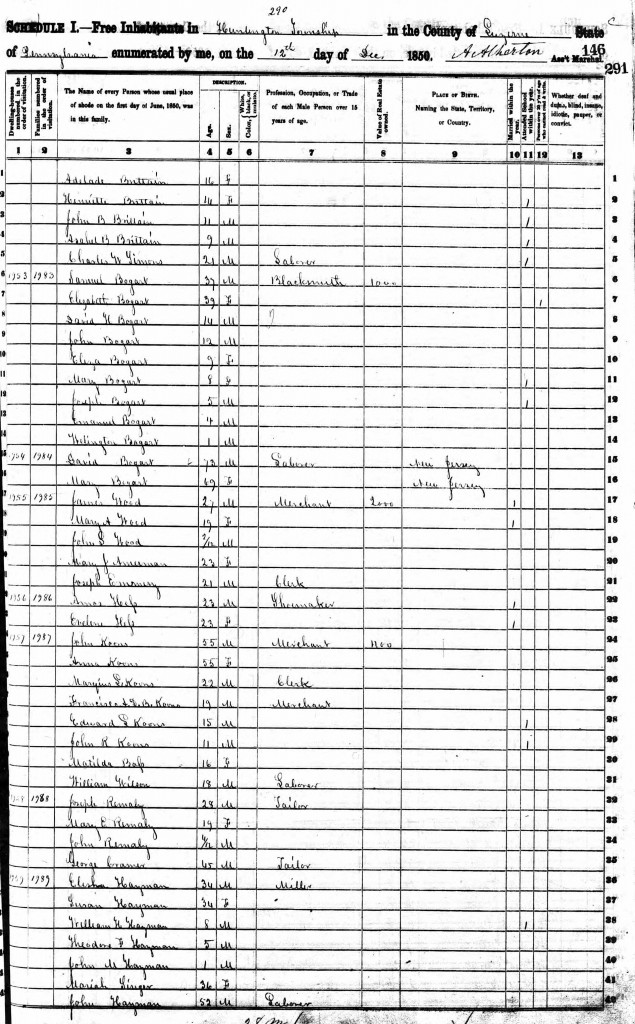 290
SCHEDULE I.—Free Inhabitants in Huntington Township in the County of Luzerne State
of Pennsylvania enumerated by me, on the 12th day of Dec. 1850. A Atherton Ass't Marshal.
146
291
Dwelling-houses numbered in the order of visitation. Families numbered in the order of visitation. The Name of every Person whose usual place of abode on the first day of June, 1850, was in this family. DESCRIPTION. Age. Sex. Color, White, black, or mulatto. Profession, Occupation, or Trade of each Male Person over 15 years of age. Value of Real Estate owned. PLACE OF BIRTH. Naming the State, Territory, or Country. Married within the year. Attended School within the year. Persons over 20 y'rs of age who cannot read & write. Whether deaf and dumb, blind, insane, idiotic, pauper, or convict.
1 2 3 4 5 6 7 8 9 10 11 12 13
1 Adelade Brittain 16 F 1
2 Brittain 14 F / 2
3 John B Brittain 11 M / 3
4 Isabel B Brittain 9 M / 4
5 Charles W Simons 21 M Laborer / 5
6 1953 1983 Samuel Bogart 37 M Blacksmith 1000 6
7 Elizabeth Bogart 39 F / 7
8 David H Bogart 14 M 8
9 John Bogart 12 M 9
10 Eliza Bogart 9 F 10
11 Mary Bogart 8 F / 11
12 Joseph Bogart 5 M / 12
13 Emanuel Bogart 4 M 13
14 Welington Bogart 1 M 14
15 1954 1984 David Bogart 73 M Laborer New Jersey 15
16 Mary Bogart 69 F New Jersey 16
17 1955 1985 James Wood 27 M Merchant 2000 / 17
18 Mary A Wood 19 F / 18
19 John S Wood M 19
20 Mary J Amerman 23 F 20
21 Joseph Emmery 21 M Clerk 21
22 1956 1986 Amos Hess 23 M Shoemaker / 22
23 Evelene Hess 23 F / 23
24 1957 1987 John Koons 55 M Merchant 1100 24
25 Anna Koons 55 F 25
26 Koons 22 M Clerk 26
27 Koons 19 M Merchant 27
28 Edward S Koons 15 M / 28
29 John R Koons 11 M / 29
30 Matilda Bass 16 F 30
31 William Wilson 18 M Laborer 31
32 1958 1988 Joseph Remaly 28 M Tailor 32
33 Mary E Remaly 19 F 33
34 John Remaly M 34
35 George Cramer 45 M Tailor 35
36 1959 1989 Elisha Hayman 34 M Miller 36
37 Susan Hayman 34 F 37
38 William H Hayman 8 M / 38
39 Theodore F Hayman 5 M 39
40 John M Hayman 1 M 40
41 Mariah Singer 36 F 41
42 John Hayman 52 M Laborer 42